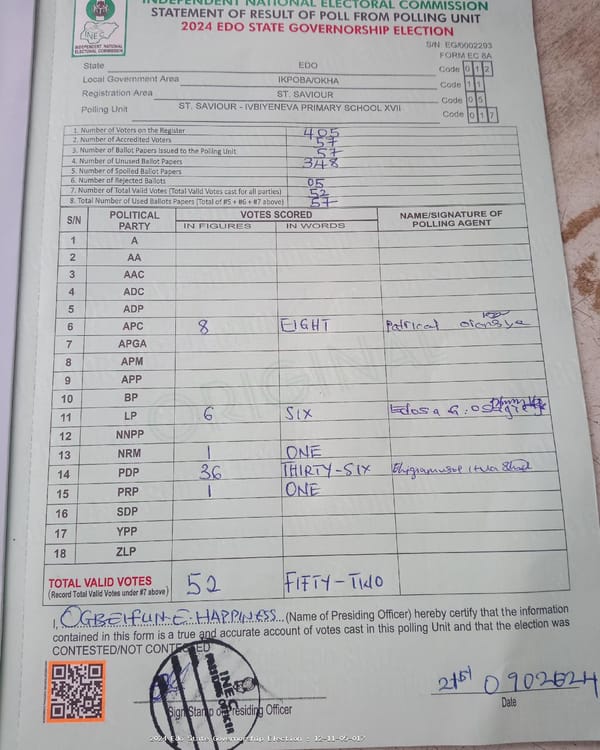 INDEPENDENT NATIONAL ELECTORAL COMMISSION
STATEMENT OF RESULT OF POLL FROM POLLING UNIT
2024 EDO STATE GOVERNORSHIP ELECTION
INEC
INDEPENDENT NATIONAL ELECTORAL COMMISSION
S/N EG/0002293
FORM EC 8A
State EDO Code 012
Local Government Area IKPOBA/OKHA Code 11
Registration Area ST. SAVIOUR Code 05
Polling Unit ST. SAVIOUR - IVBIYENEVA PRIMARY SCHOOL XVII Code 017
1. Number of Voters on the Register 405
2. Number of Accredited Voters 57
3. Number of Ballot Papers Issued to the Polling Unit 57
4. Number of Unused Ballot Papers 348
5. Number of Spoiled Ballot Papers
6. Number of Rejected Ballots 05
7. Number of Total Valid Votes (Total Valid Votes cast for all parties) 52
8. Total Number of Used Ballots Papers (Total of #5 + #6 + #7 above) 57
S/N POLITICAL PARTY VOTES SCORED NAME/SIGNATURE OF POLLING AGENT
IN FIGURES IN WORDS
1 A
2 AA
3 AAC
4 ADC
5 ADP
6 APC 8 EIGHT
7 APGA
8 APM
9 APP
10 BP
11 LP 6 SIX Edosa
12 NNPP
13 NRM 1 ONE
14 PDP 36 THIRTY-SIX
15 PRP 1 ONE
16 SDP
17 YPP
18 ZLP
ORIGINAL
TOTAL VALID VOTES 52 FIFTY-TWO
(Record Total Valid Votes under #7 above)
I, OGBEIFUN-E-HAPPINESS (Name of Presiding Officer) hereby certify that the information
contained in this form is a true and accurate account of votes cast in this polling Unit and that the election was
CONTESTED/NOT CONTESTED
INEC
PRESIDING OFFICER
Sign Stamp of Presiding Officer
21st 0902024
Date
2024 Edo State Governorship Election - 12-11-05-017